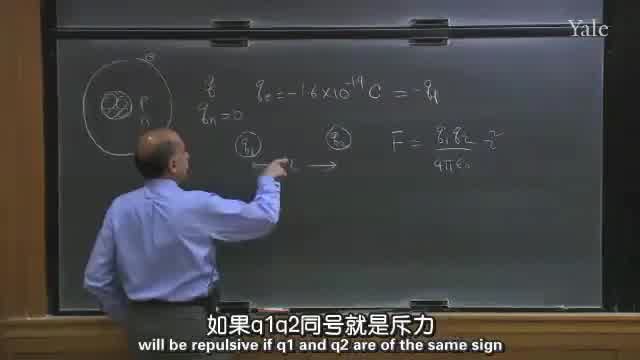 Yale
e
p
n
q
qₑ = -1.6 × 10⁻¹⁹ C = -qₚ
qₙ = 0
q₁
q₂
r
F = q₁q₂ / 4πε₀
如果q1q2同号就是斥力
will be repulsive if q1 and q2 are of the same sign